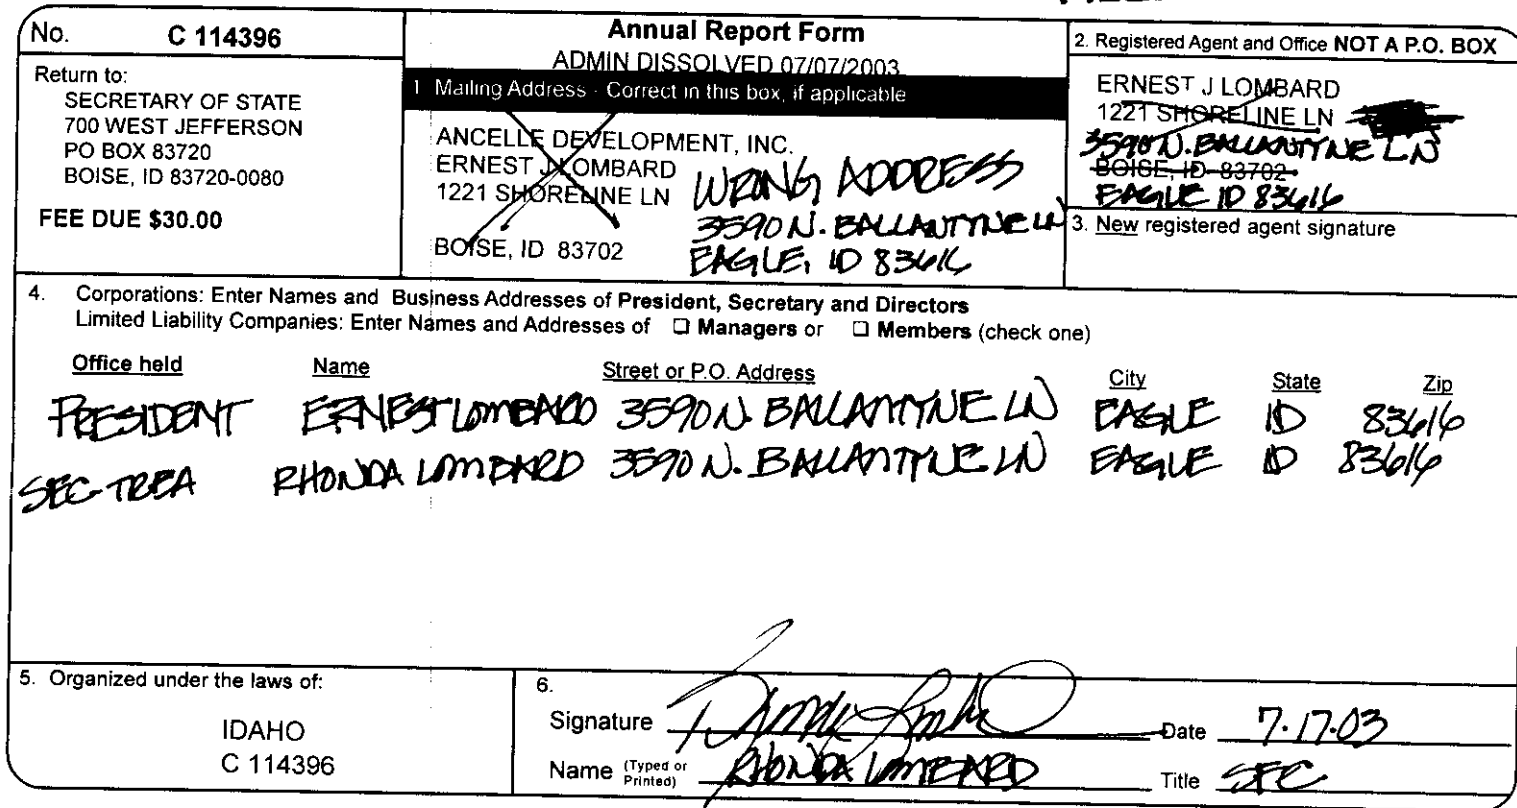 No. C 114396
Return to:
SECRETARY OF STATE
700 WEST JEFFERSON
PO BOX 83720
BOISE, ID 83720-0080
FEE DUE $30.00
Annual Report Form
ADMIN DISSOLVED 07/07/2003
1 Mailing Address - Correct in this box, if applicable
ANCELLE DEVELOPMENT, INC.
ERNEST J LOMBARD
1221 SHORELINE LN
BOISE, ID 83702
WRONG ADDRESS
3590 N. BALLANTYNE LN
EAGLE, ID 83616
2. Registered Agent and Office NOT A P.O. BOX
ERNEST J LOMBARD
1221 SHORELINE LN
3590 N. BALLANTYNE LN
BOISE, ID 83702
EAGLE ID 83616
3. New registered agent signature
4. Corporations: Enter Names and Business Addresses of President, Secretary and Directors
Limited Liability Companies: Enter Names and Addresses of ☐ Managers or ☐ Members (check one)
Office held Name Street or P.O. Address City State Zip
PRESIDENT ERNEST LOMBARD 3590 N. BALLANTYNE LN EAGLE ID 83616
SEC-TREA RHONDA LOMBARD 3590 N. BALLANTYNE LN EAGLE ID 83616
5. Organized under the laws of:
IDAHO
C 114396
6.
Signature Date 7.17.03
Name (Typed or Printed) RHONDA LOMBARD Title SEC